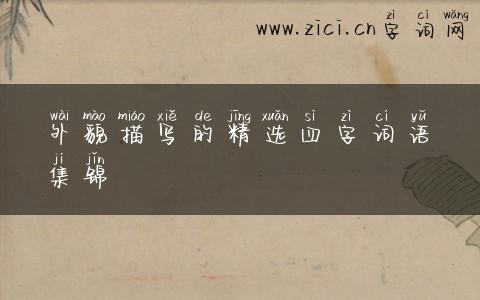 zì cí wǎng
www.zici.cn字词网
wài mào miáo xiě de jīng xuǎn sì zì cí yǔ
外貌描写的精选四字词语
jí jǐn
集锦